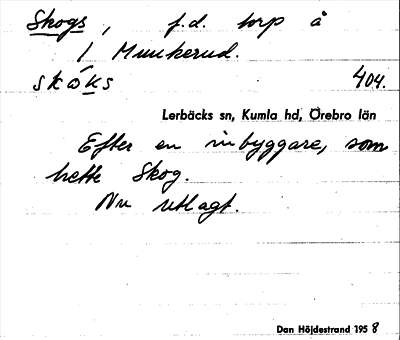 Skogs, f.d. torp å
1 Munkerud.
skóks 404.
Lerbäcks sn, Kumla hd, Örebro län
Efter en inbyggare, som
hette Skog.
Nu utlagt.
Dan Höjdestrand 1958